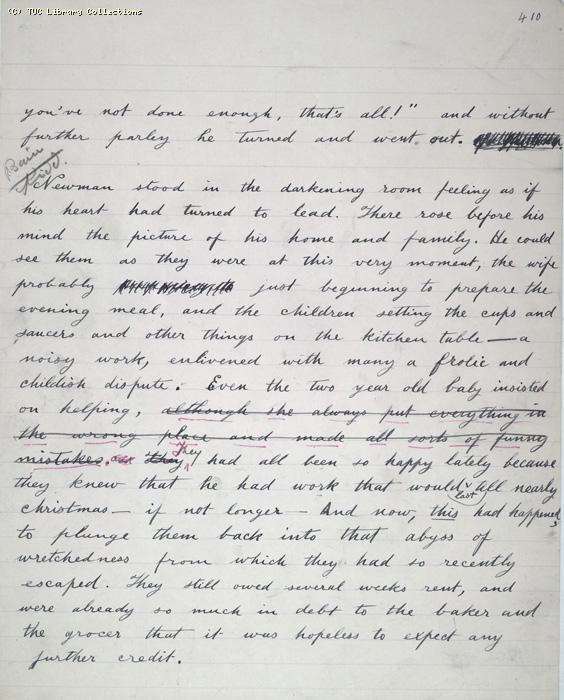 (C) TUC Library Collections
410
you've not done enough, that's all!" and without
further parley he turned and went out.
Bain
Newman stood in the darkening room feeling as if
his heart had turned to lead. There rose before his
mind the picture of his home and family. He could
see them as they were at this very moment, the wife
probably just beginning to prepare the
evening meal, and the children setting the cups and
saucers and other things on the kitchen table — a
noisy work, enlivened with many a frolic and
childish dispute. Even the two year old baby insisted
on helping, although she always put everything in
the wrong place and made all sorts of funny
mistakes. they They had all been so happy lately because
they knew that he had work that would last till nearly
christmas — if not longer — And now, this had happened,
to plunge them back into that abyss of
wretchedness from which they had so recently
escaped. They still owed several weeks rent, and
were already so much in debt to the baker and
the grocer that it was hopeless to expect any
further credit.